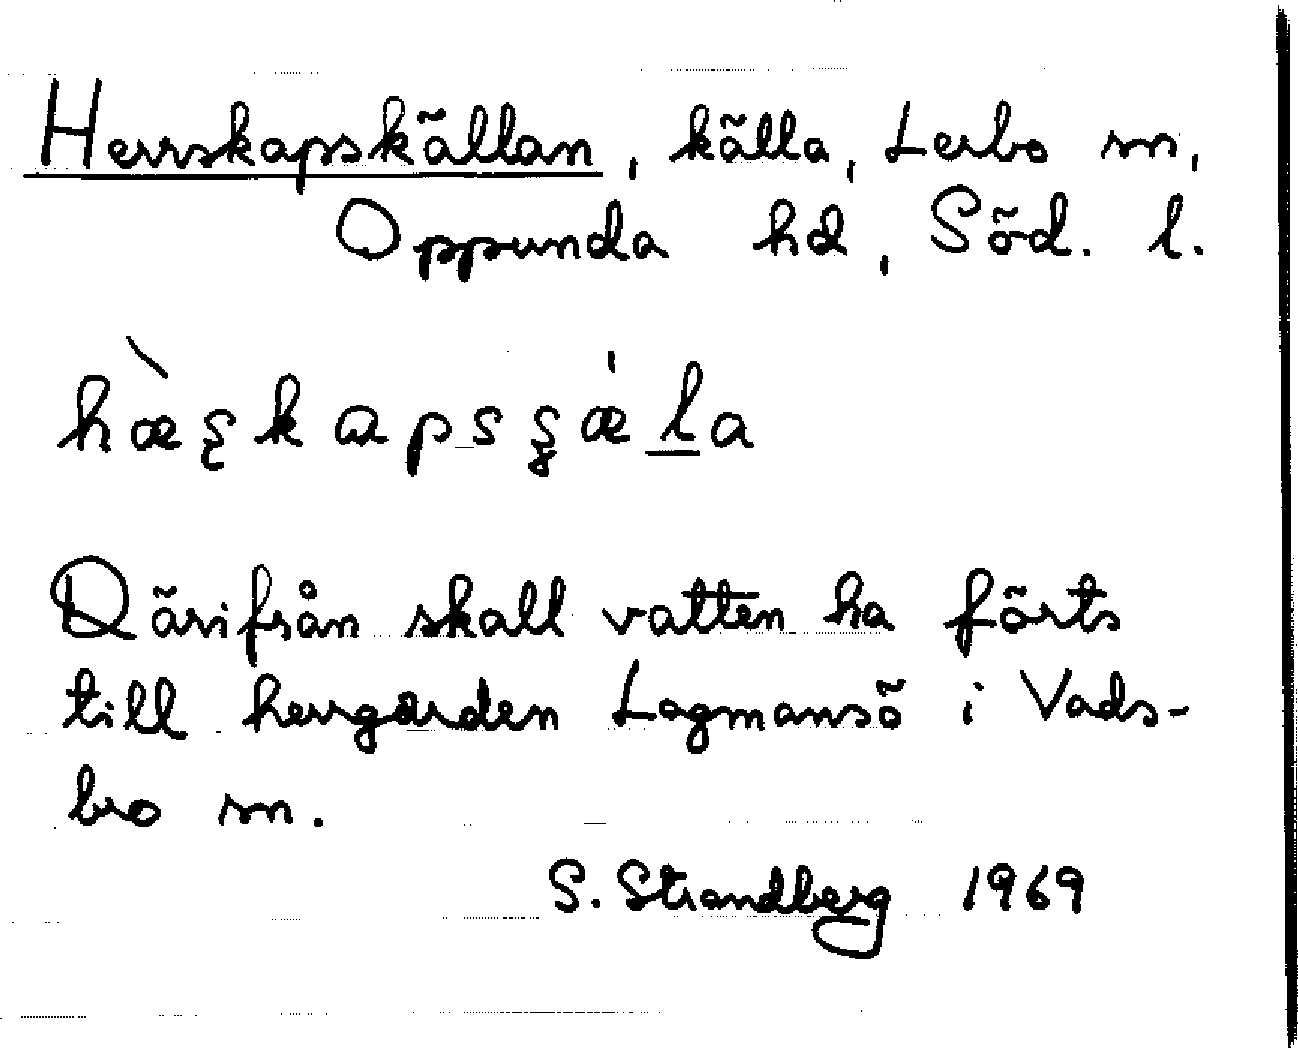 Herrskapskällan, källa, Lerbo sn,
Oppunda hd, Söd. l.
Därifrån skall vatten ha förts
till herrgården Lagmansö i Vads-
bro sn.
S. Strandberg 1969